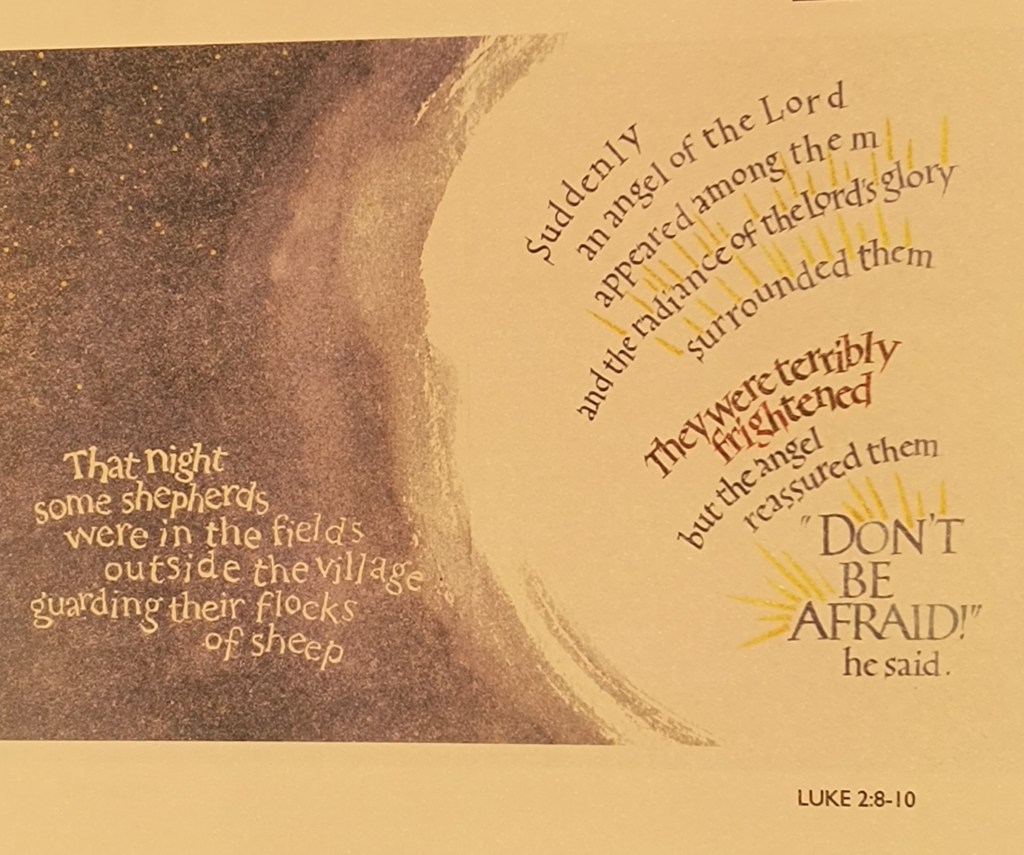 That night
some shepherds
were in the fields
outside the village
guarding their flocks
of sheep
Suddenly
an angel of the Lord
appeared among them
and the radiance of the Lord's glory
surrounded them
They were terribly
frightened
but the angel
reassured them
"DON'T
BE
AFRAID!"
he said.
LUKE 2:8-10